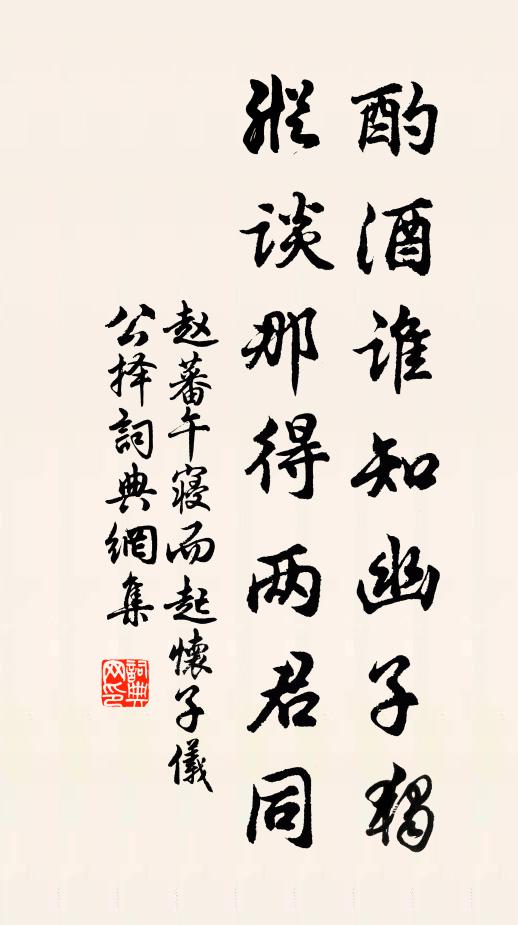 酌酒谁知幽子独
縱谈那得两君同
赵蕃午寝而起懷子儀
公择詞典網集
詞典网印